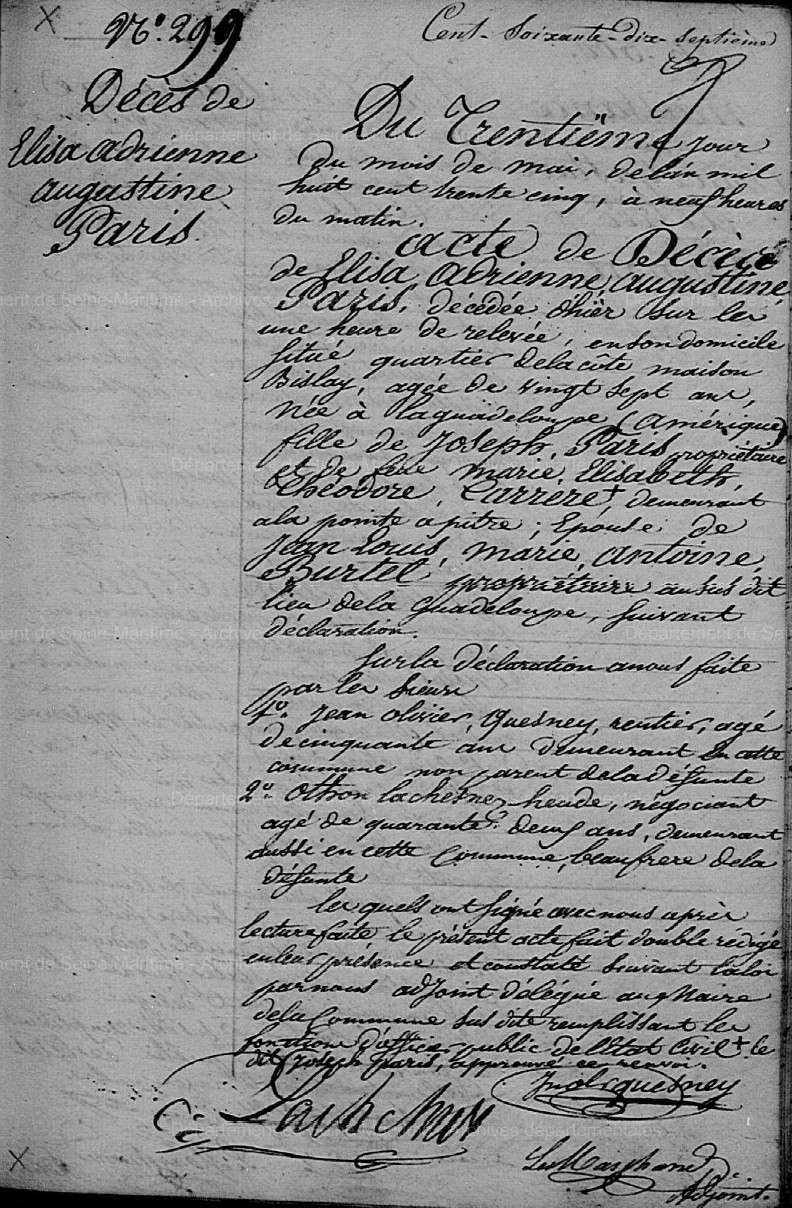 N.° 299
Cent-Soixante-dix-septième
Décès de
Elisa adrienne
augustine
Paris.
Du Trentième jour
du mois de mai, delan mil
huit cent trente cinq, à neuf heures
du matin.
acte de Décès
de Elisa, Adrienne, augustine,
Paris, décédée d'hièr sur les
une heure de relevée, enson domicile
situé quartier delacôte maison
Bislay, agée de vingt sept ans,
née à laguadeloupe (amérique)
fille de Joseph, Paris propriétaire
et de feue marie, Elisabeth,
Théodore, Larrere+, demeurant
ala pointe apitre; Epouse de
Jean Louis, marie, antoine,
Burtel, propriétaire ausus dit
lieu dela Guadeloupe, suivant
déclaration.
Surla déclaration anous faite
par les Sieurs
1°. Jean olivier, Quesney, rentier, agé
decinquante ans demeurant en cette
commune non parent deladéfunte
2°. othon lachesnez-heude, négociant
agé de quarante deux ans, demeurant
aussi en cette Commune, beaufrere dela
défunte
les quels ont signé avec nous après
lecture faite le présent acte fait double rédigé
enleur présence et constaté Suivant laloi
parnous adjoint délégué au Maire
dela Commune sus dite remplissant les
fonctions d'officier public del'Etat Civil + le
dit Joseph paris, approuvé ce renvoi.
Quesney
Adjoint.